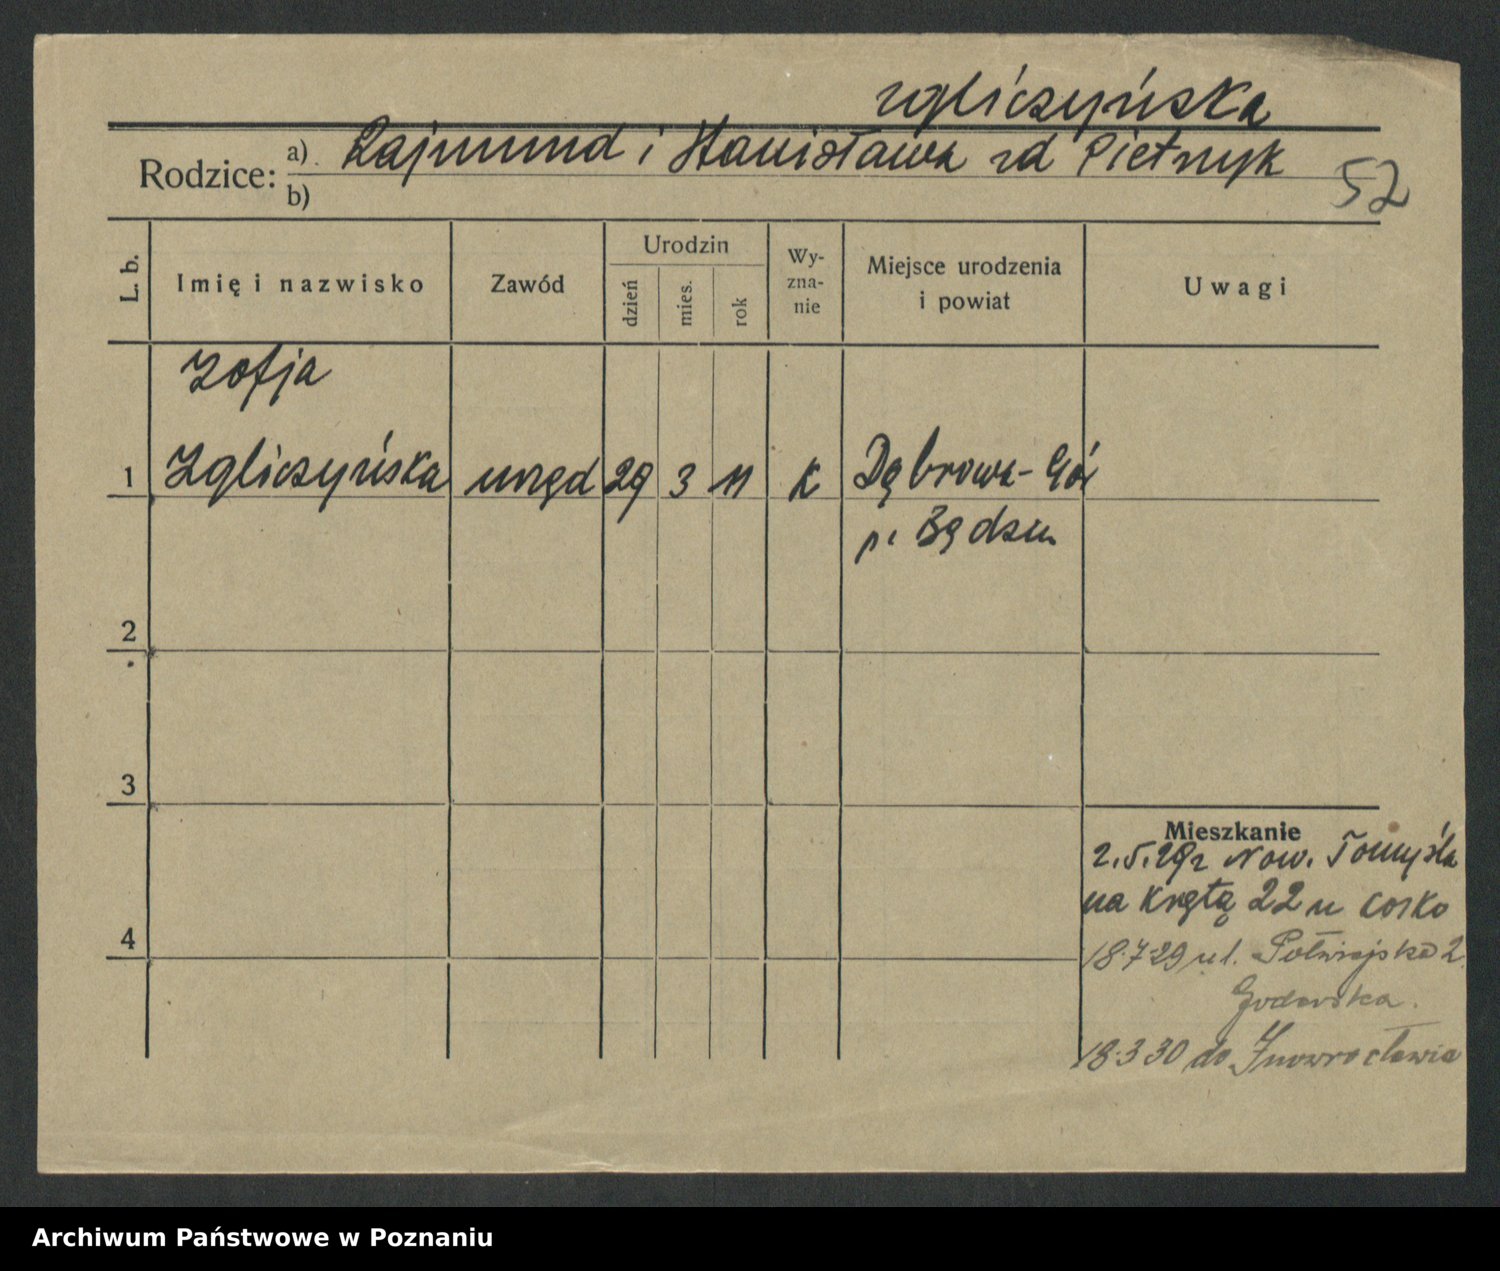 Zgliczyńska
Rodzice: a) Rajmund i Stanisława zd Pietrzyk
b)
52
L. b.
Imię i nazwisko
Zawód
Urodzin
dzień
mies.
rok
Wy-
zna-
nie
Miejsce urodzenia
i powiat
Uwagi
Zofja
1 Zgliczyńska urzęd 29 3 11 k Dąbrowa-Gór
p. Będzin
2
3
4
Mieszkanie
2.5.29 z Now. Tomyśla
na Krętą 22 u Cosko
18.7 29 ul. Półwiejska 2
18.3 30 do Inowrocławia
Archiwum Państwowe w Poznaniu